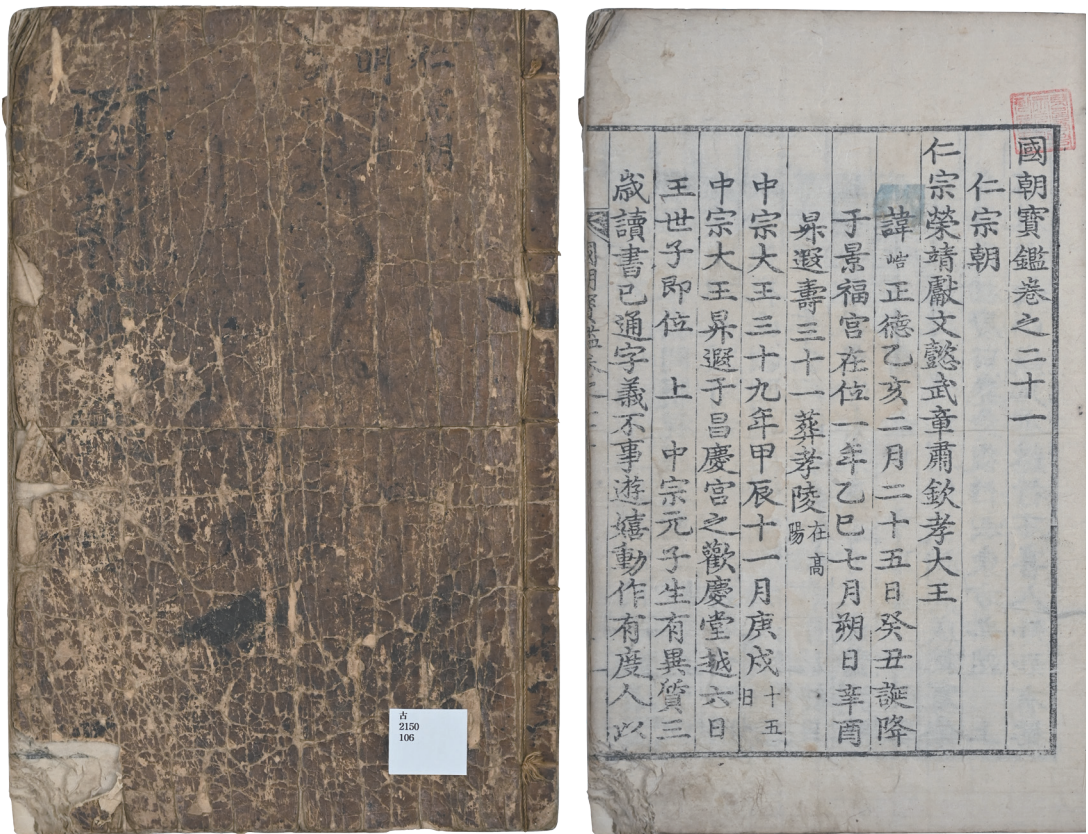 仁
明
古
2150
106
國朝寶鑑卷之二十一
仁宗朝
仁宗榮靖獻文懿武章肅欽孝大王
諱㟳正德乙亥二月二十五日癸丑誕降
于景福宮在位一年乙巳七月朔日辛酉
昇遐壽三十一葬孝陵在高陽
中宗大王三十九年甲辰十一月庚戌十五日
中宗大王昇遐于昌慶宮之歡慶堂越六日
王世子即位 上 中宗元子生有異質三
歲讀書已通字義不事遊嬉動作有度人以